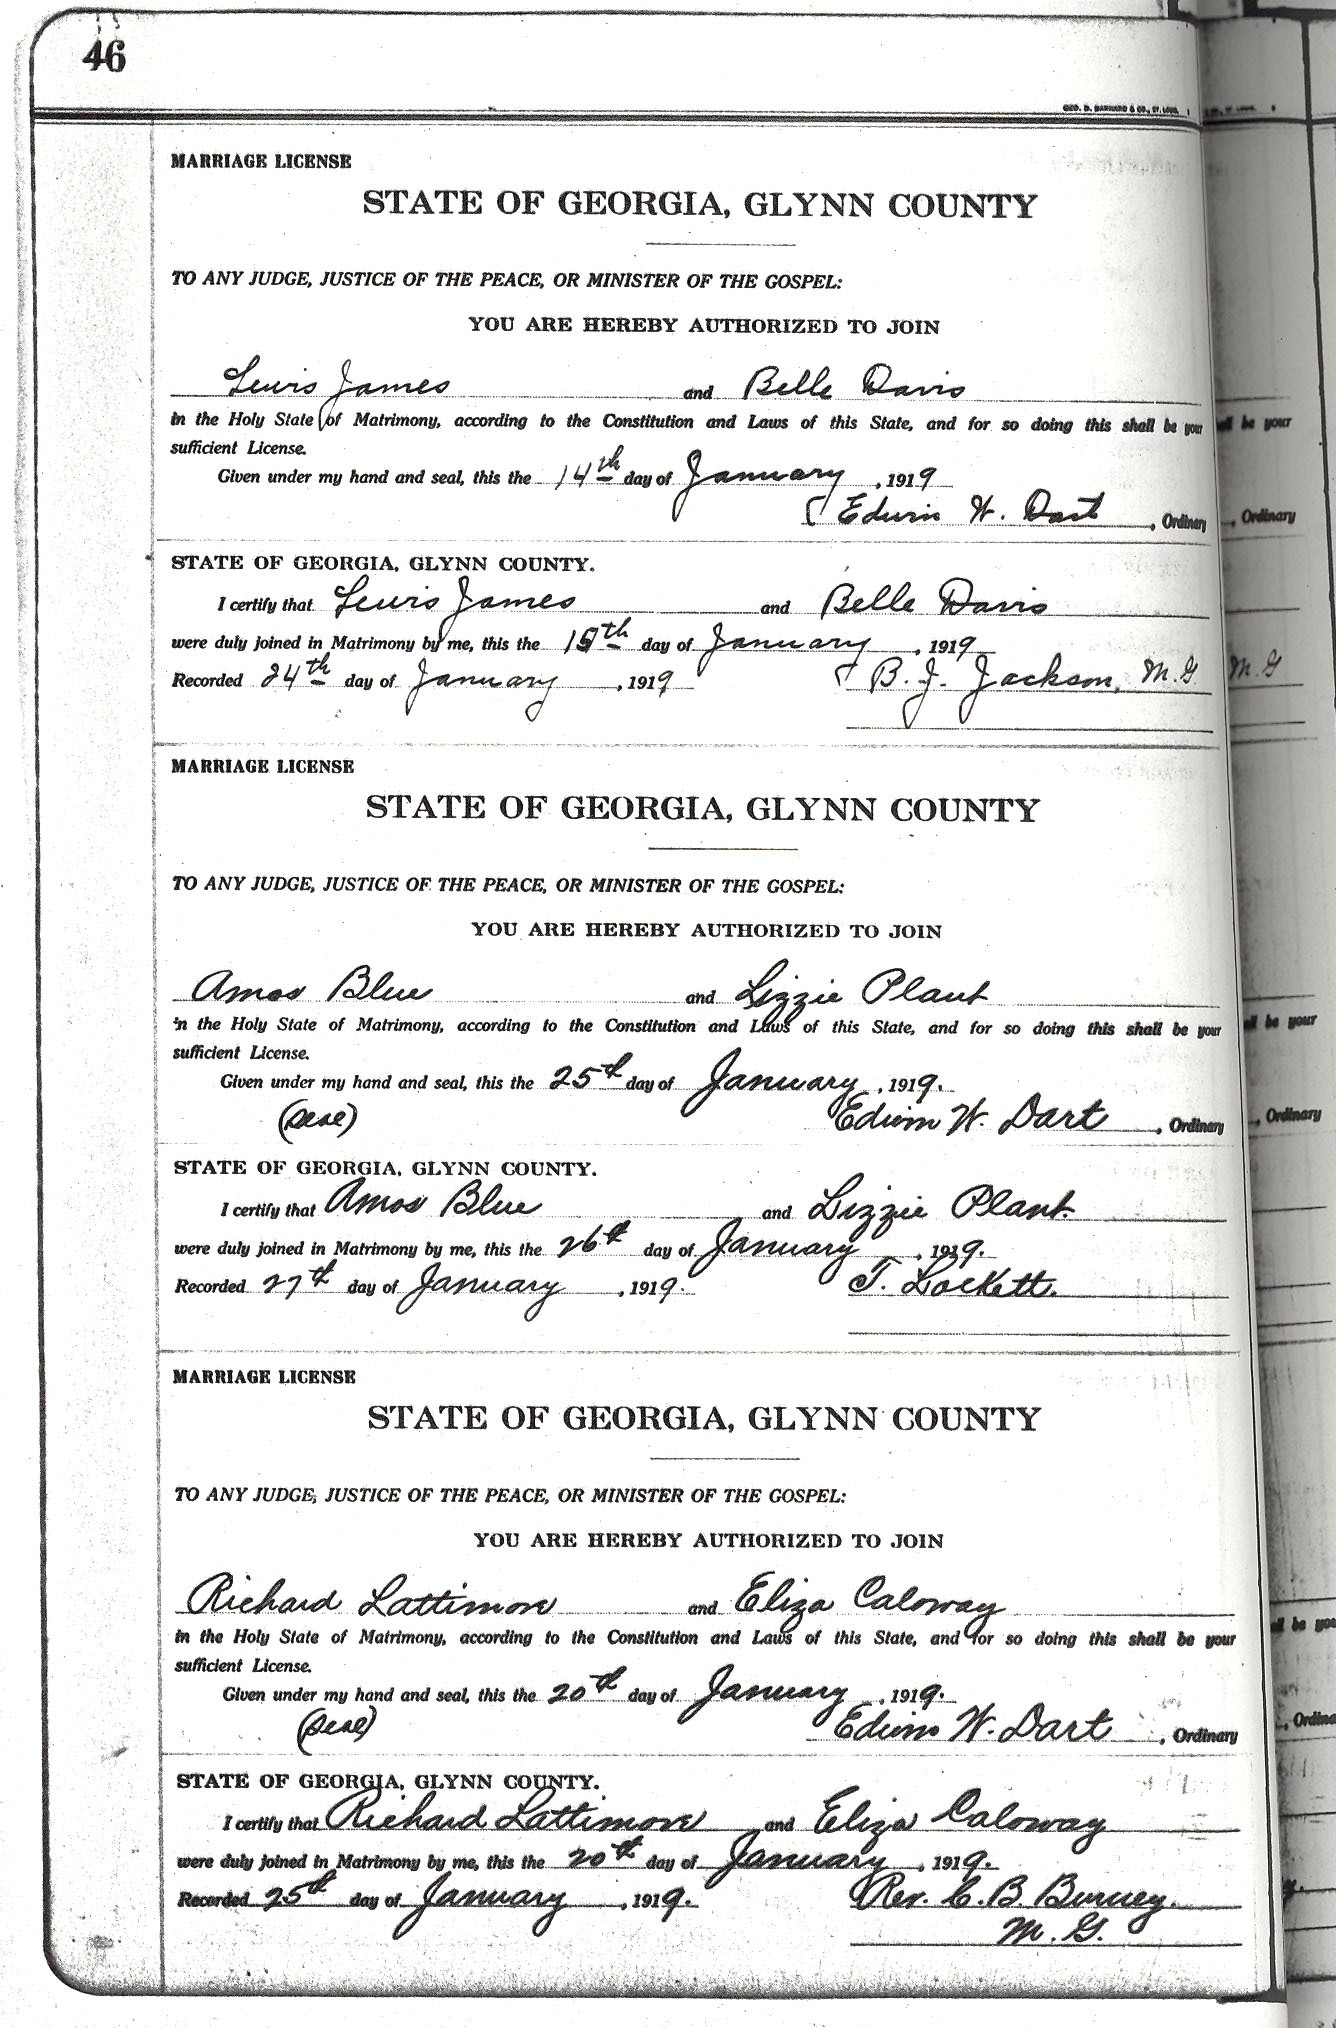 46
GEO. D. BARNARD & CO., ST. LOUIS.
MARRIAGE LICENSE
STATE OF GEORGIA, GLYNN COUNTY
TO ANY JUDGE, JUSTICE OF THE PEACE, OR MINISTER OF THE GOSPEL:
YOU ARE HEREBY AUTHORIZED TO JOIN
Lewis James and Belle Davis
in the Holy State of Matrimony, according to the Constitution and Laws of this State, and for so doing this shall be your
sufficient License.
Given under my hand and seal, this the 14th day of January, 1919
Edwin W. Dart, Ordinary
STATE OF GEORGIA, GLYNN COUNTY.
I certify that Lewis James and Belle Davis
were duly joined in Matrimony by me, this the 15th day of January, 1919
Recorded 24th day of January, 1919 B. J. Jackson, M.G
MARRIAGE LICENSE
STATE OF GEORGIA, GLYNN COUNTY
TO ANY JUDGE, JUSTICE OF THE PEACE, OR MINISTER OF THE GOSPEL:
YOU ARE HEREBY AUTHORIZED TO JOIN
Amos Blue and Lizzie Plant
in the Holy State of Matrimony, according to the Constitution and Laws of this State, and for so doing this shall be your
sufficient License.
Given under my hand and seal, this the 25th day of January, 1919.
(Seal) Edwin W. Dart, Ordinary
STATE OF GEORGIA, GLYNN COUNTY.
I certify that Amos Blue and Lizzie Plant.
were duly joined in Matrimony by me, this the 26th day of January, 1919.
Recorded 27th day of January, 1919. T. Lockett.
MARRIAGE LICENSE
STATE OF GEORGIA, GLYNN COUNTY
TO ANY JUDGE, JUSTICE OF THE PEACE, OR MINISTER OF THE GOSPEL:
YOU ARE HEREBY AUTHORIZED TO JOIN
Richard Lattimore and Eliza Caloway
in the Holy State of Matrimony, according to the Constitution and Laws of this State, and for so doing this shall be your
sufficient License.
Given under my hand and seal, this the 20th day of January, 1919.
(Seal) Edwin W. Dart, Ordinary
STATE OF GEORGIA, GLYNN COUNTY.
I certify that Richard Lattimore and Eliza Caloway
were duly joined in Matrimony by me, this the 20th day of January, 1919.
Recorded 25th day of January, 1919. Rev. C. B. Burney.
M. G.